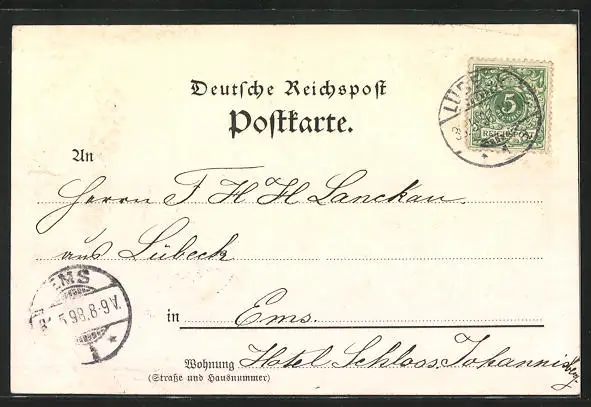 Deutsche Reichspost
Postkarte.
5
REICHSPOST
An
Herrn F H H Lanckau
aus Lübeck
EMS
5.98.8-9V.
1
in Ems.
Wohnung Hotel Schloss Johannisbg.
(Straße und Hausnummer)